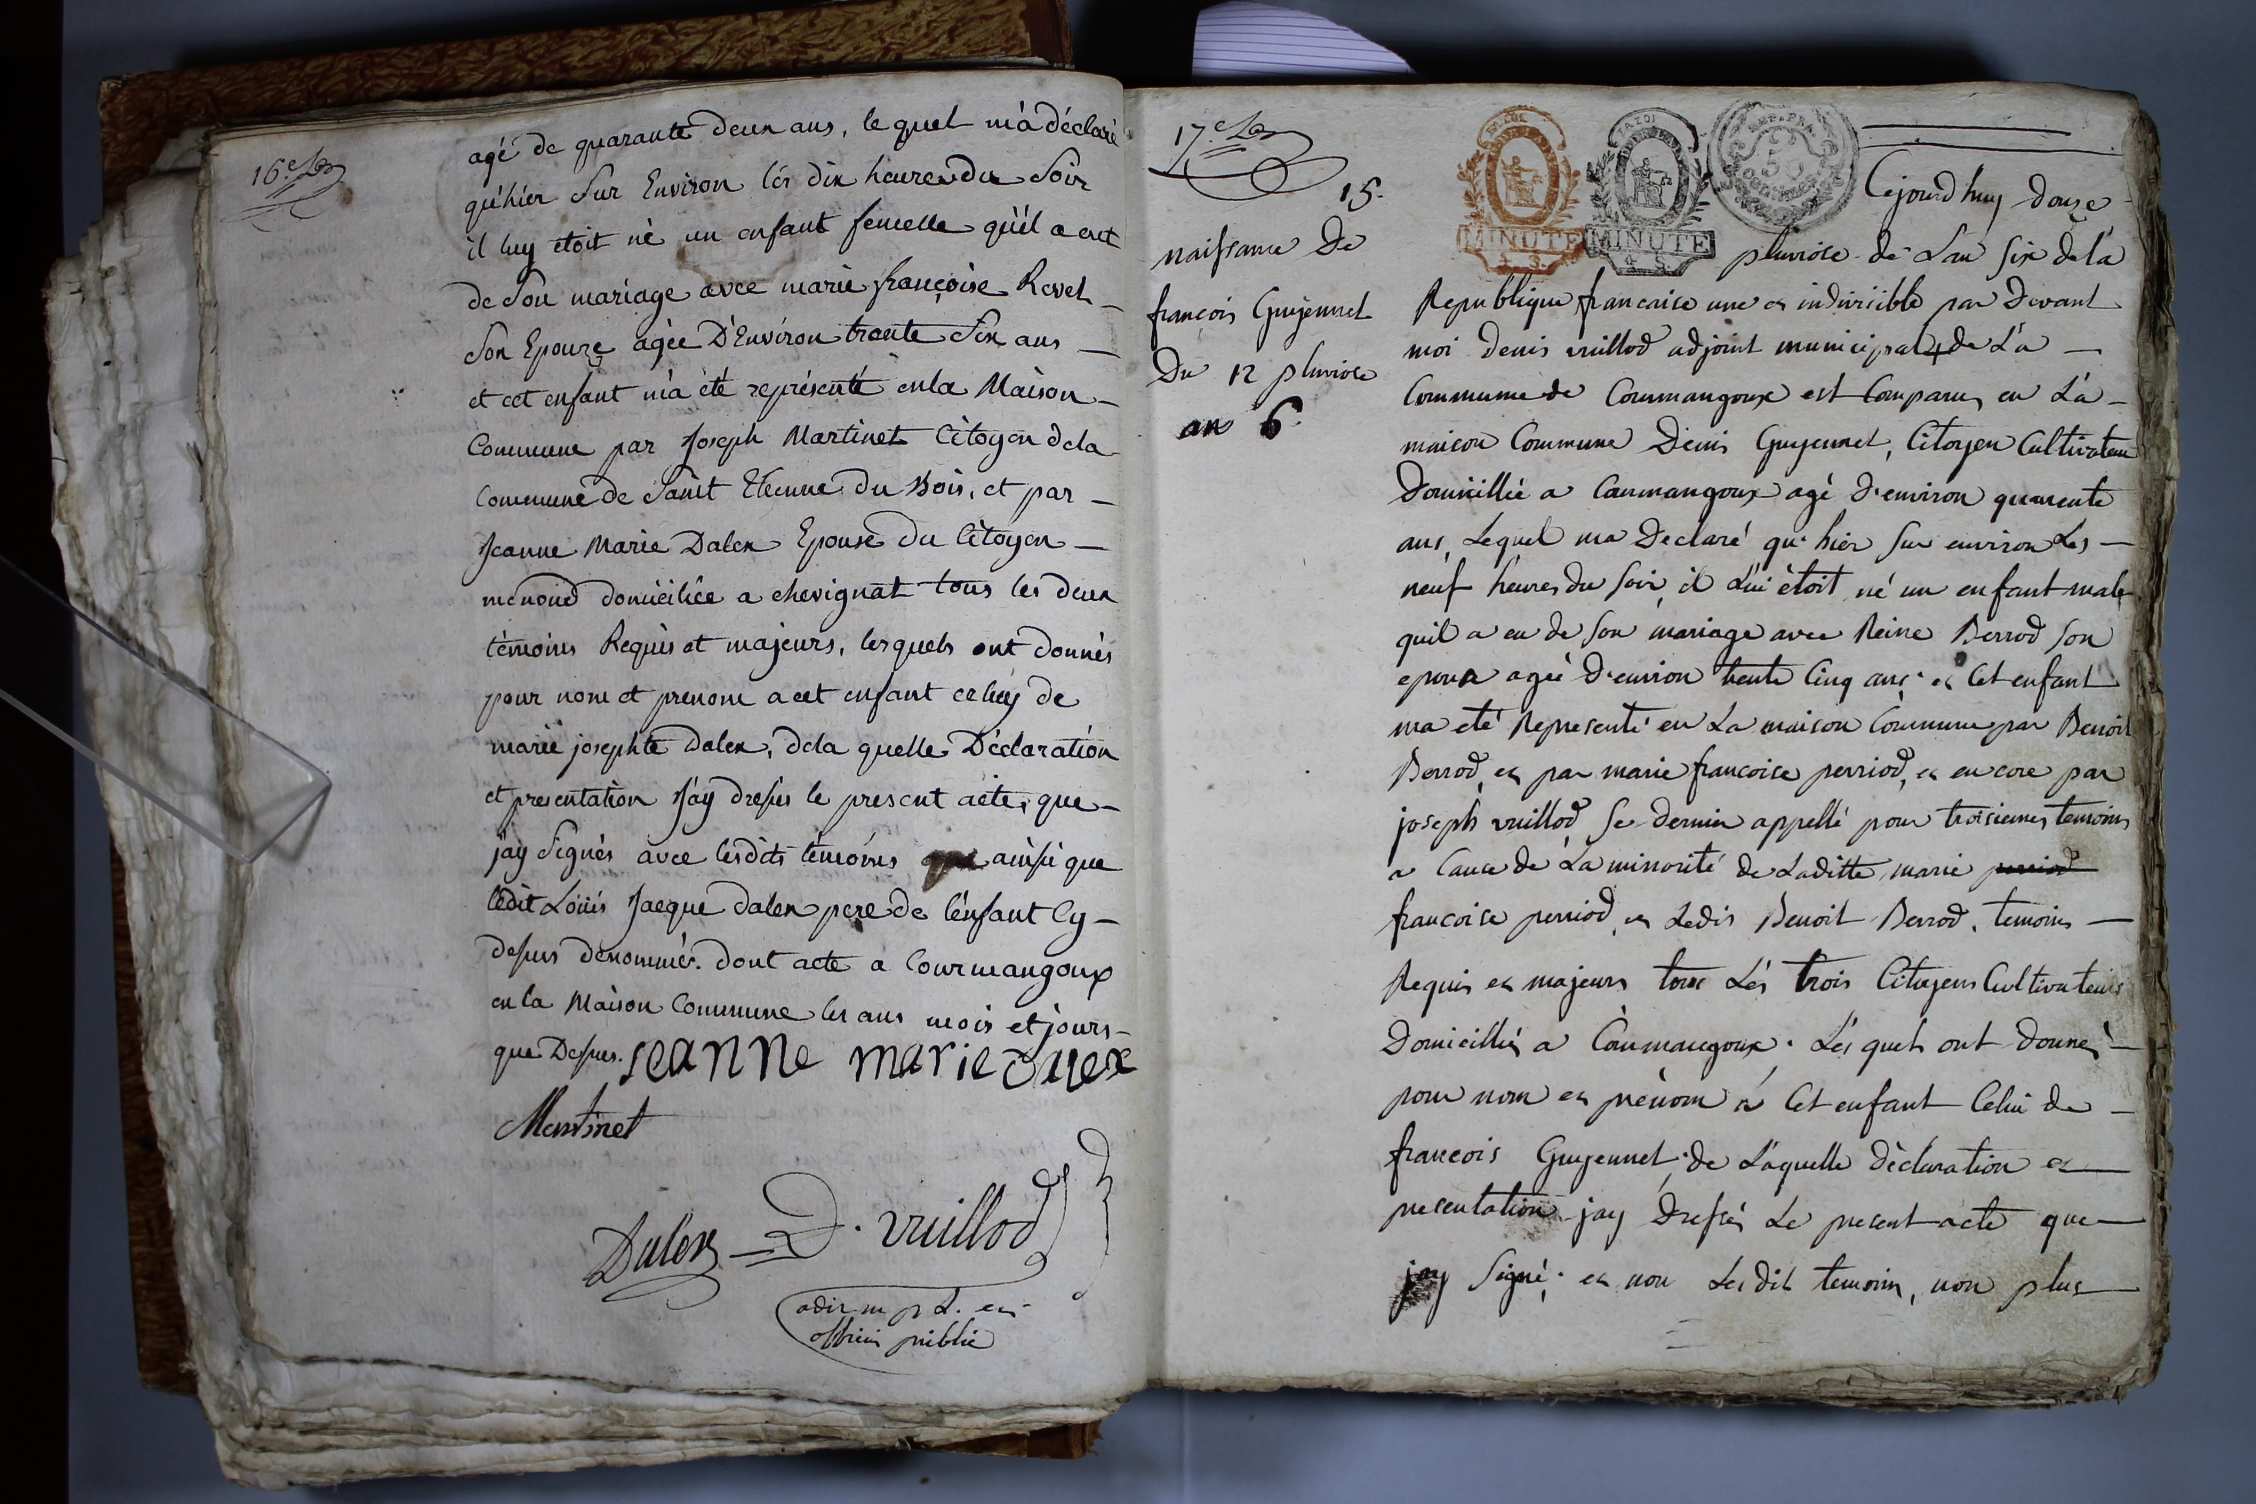 16.e
agé de quarante deux ans, le quel m'à déclaré
qu'hier sur Environ lés dix heures du Soir
il luy étoit né un enfant femelle qu'il a eut
de Son mariage avec marie françoise Revel
Son Epouze agée D'Environ trante Six ans
et cet enfant m'a été représenté en la Maison
Commune par Joseph Martinet Citoyen dela
Commune de Saint Etienne du Bois, et par
Jeanne Marie Dalex Epouse du Citoyen
domiciliée a chevignat tous les deux
témoins Requis et majeurs, lesquels ont donnés
pour nom et prenom a cet enfant celuy de
marie josephte Dalex, dela quelle Déclaration
et presentation J'ay dressés le present acte, que
j'ay Signés avec lesdits témoins ainsi que
ledit Loüis Jacque dalex pere de l'enfant Cy
dessus dénommés. dont acte a Courmangoux
en la Maison Commune les ans mois et jours
que Dessus. jeanne marie dalex
Martinet
Dalex D. vuillod
officier public
17.e
15.
naissance De
françois Guyennet
Du 12 pluviose
an 6
MINUTE MINUTE
REP. FRA.
50
CENTIMES
Cejourd'huy douze
pluviose de L'an six de la
Republique francaise une et indivisible par Devant
moi denis vuillod adjoint municipal de L'a
Commune de Courmangoux est Comparu en L'a
maison Commune Denis Guyennet, Citoyen Cultivateur
Domicillié a Courmangoux agé d'environ quarente
ans, Lequel ma Declaré qu'hier sur environ Les
neuf heures du soir, il Lui étoit né un enfant male
quil a eu de son mariage avec Reine Berrod son
epouse agée d'environ trente Cinq ans, et Cet enfant
ma eté Representé en La maison Commune par Benoit
Berrod, et par marie francoise perriod, et encore par
joseph vuillod Se dernier appellé pour troisiemes temoins
a Cause de La minorité de Laditte marie perriod
francoise perriod, et Ledit Benoit Berrod, temoins
Requis et majeurs tous Lés trois Citoyens Cultivateurs
Domicilliés a Courmangoux. Lésquels ont donnés
pour nom et prénom a Cet enfant Celui de
francois Guyennet, de L'aquelle déclaration et
presentation jay dressés Le present acte que
jay Signé, et non Lesdits temoins, non plus